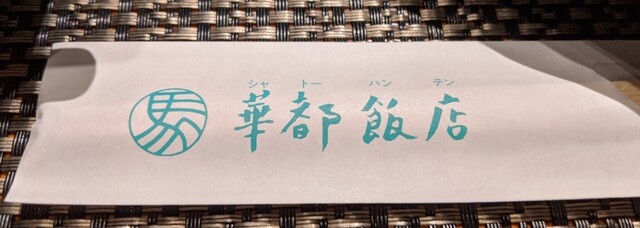 シャ トー ハン テン
馬 華都飯店